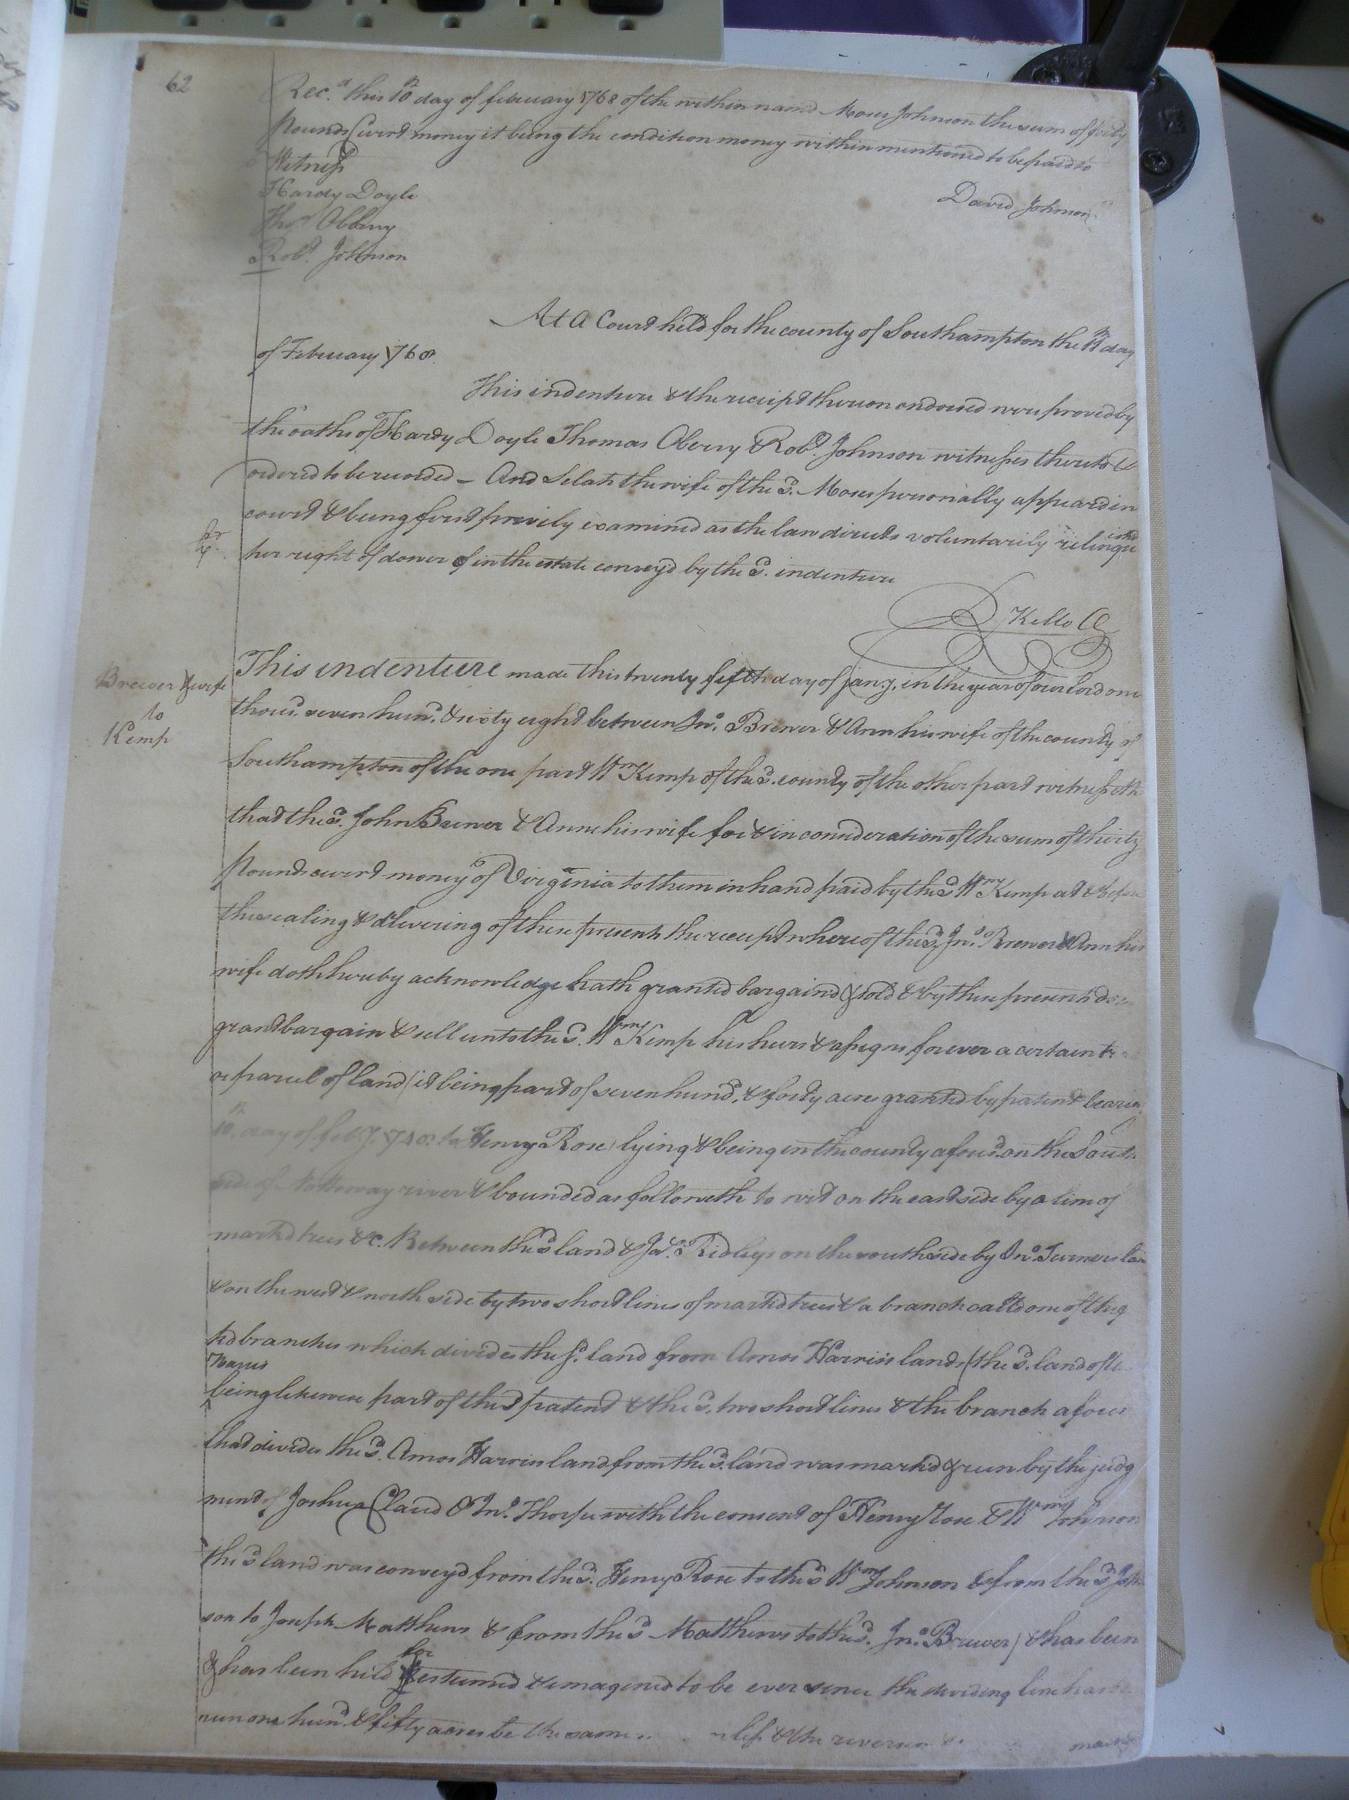 62
Rec.d this 10th day of february 1768 of the within namd Moses Johnson the sum of forty
Pounds Curr.t money it being the condition money within mentioned to be paid to
Witness
David Johnson
Hardy Doyle
Tho.s Obery
Rob.t Johnson
At a Court held for the county of Southampton the 11th day
of February 1768
This indenture & the receipt thereon endorsed were proved by
the oaths of Hardy Doyle Thomas Obery & Rob.t Johnson witnesses thereto &
ordered to be recorded – And Selah the wife of the s.d Moses personally appeard in
court & being first previly examined as the law directs voluntarily relinquishd
her right of dower of in the estate convey'd by the s.d indenture
R Kello CC
Brewer & wife
to
Kemp
This indenture made this twenty fifth day of jan.y in the year of our lord one
thous.d seven hun.d & sixty eight between Jn.o Brewer & Ann his wife of the county of
Southampton of the one part Wm Kemp of the s.d county of the other part witnesseth
that the s.d John Brewer & Ann his wife for & in consideration of the sum of thirty
Pounds curr.t money of Virginia to them in hand paid by the s.d Wm Kemp at & before
the sealing & delivering of these presents the receipt whereof the s.d Jn.o Brewer & Ann his
wife doth hereby acknowledge hath granted bargaind & sold & by these presents do
grant bargain & sell unto the s.d Wm Kemp his heirs & assigns forever a certain
or parcel of land (it being part of seven hund.d & forty acres granted by patent bearing
day of feb.y to Henry Rose) lying & being in the county afous.d on the South
side of Nottoway river & bounded as followeth to wit on the east side by a line of
markd trees &c. Between the s.d land & Ja.s Ridleys on the south side by Jn.o Turners land
& on the west & north side by two short lines of markd trees & a branch calld one of the
branches which divides the s.d land from Amos Harris land (the s.d land of the
Harris
being likewise part of the s.d patent & the s.d two short lines & the branch afores
that divides the s.d Amos Harris land from the s.d land was markd & run by the judg
ment of Joshua Claud & Jn.o Thorpe with the consent of Henry Rose & Wm Johnson
the s.d land was convey'd from the s.d Henry Rose to the s.d Wm Johnson & from the s.d John
son to Joseph Matthews & from the s.d Matthews to the s.d Jn.o Brewer) & has been
& has been held for esteemed & imagened to be ever since the dividing line has been
run one hund.d & fifty acres be the same less & the reversion